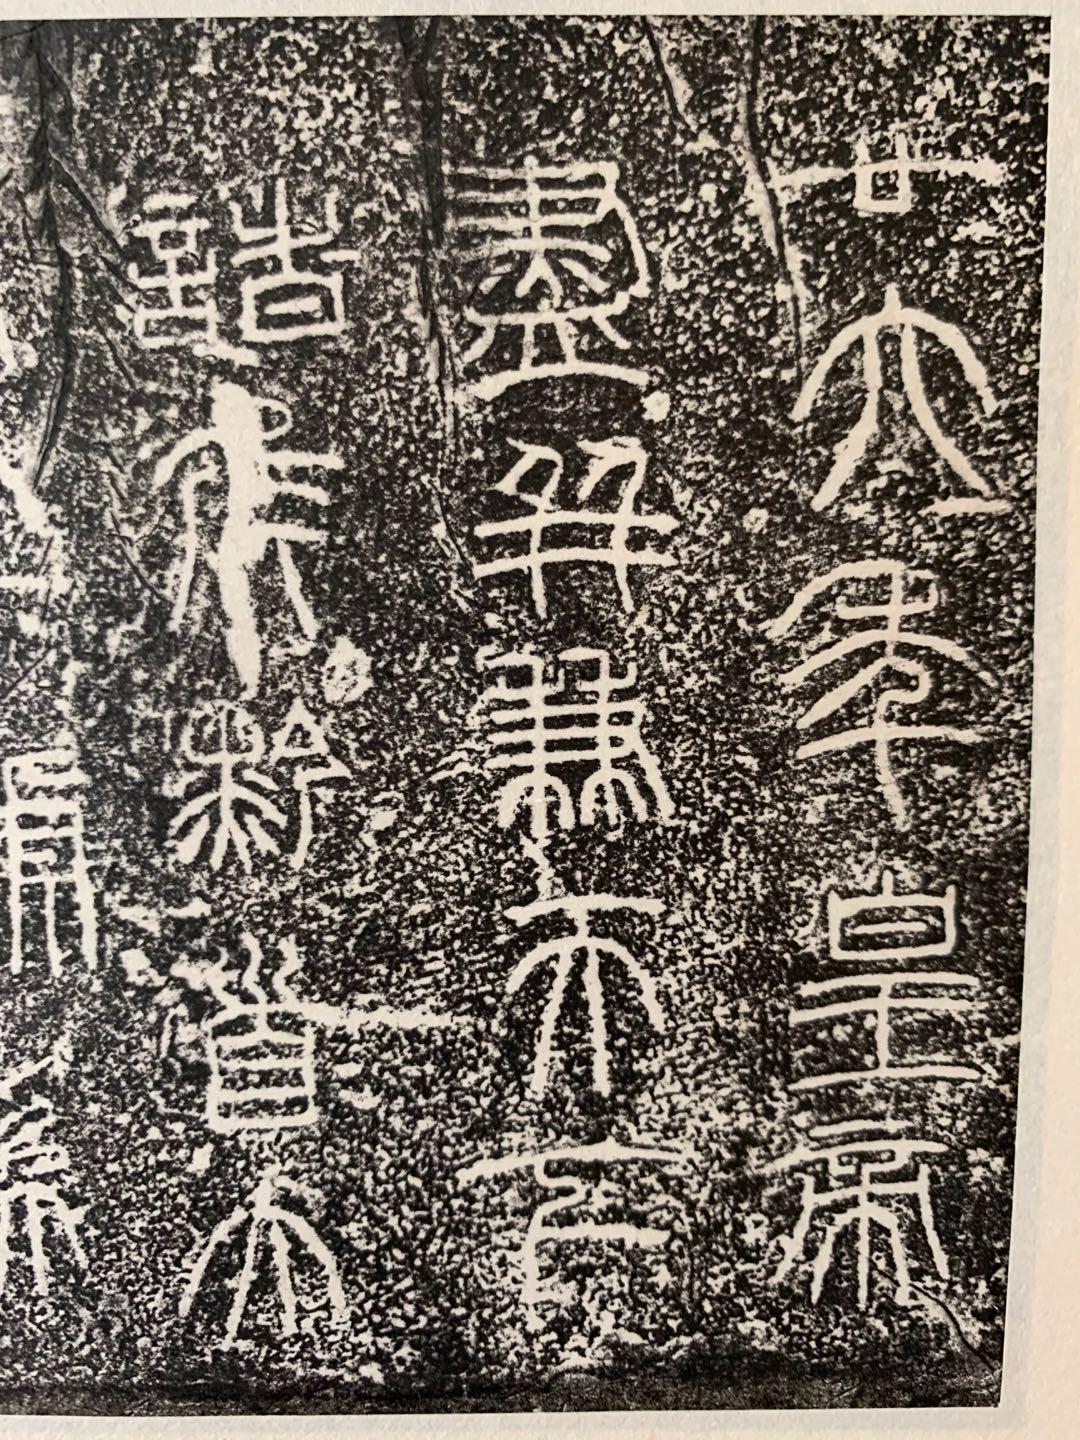 廿六年皇帝
盡并兼天下
諸侯黔首大